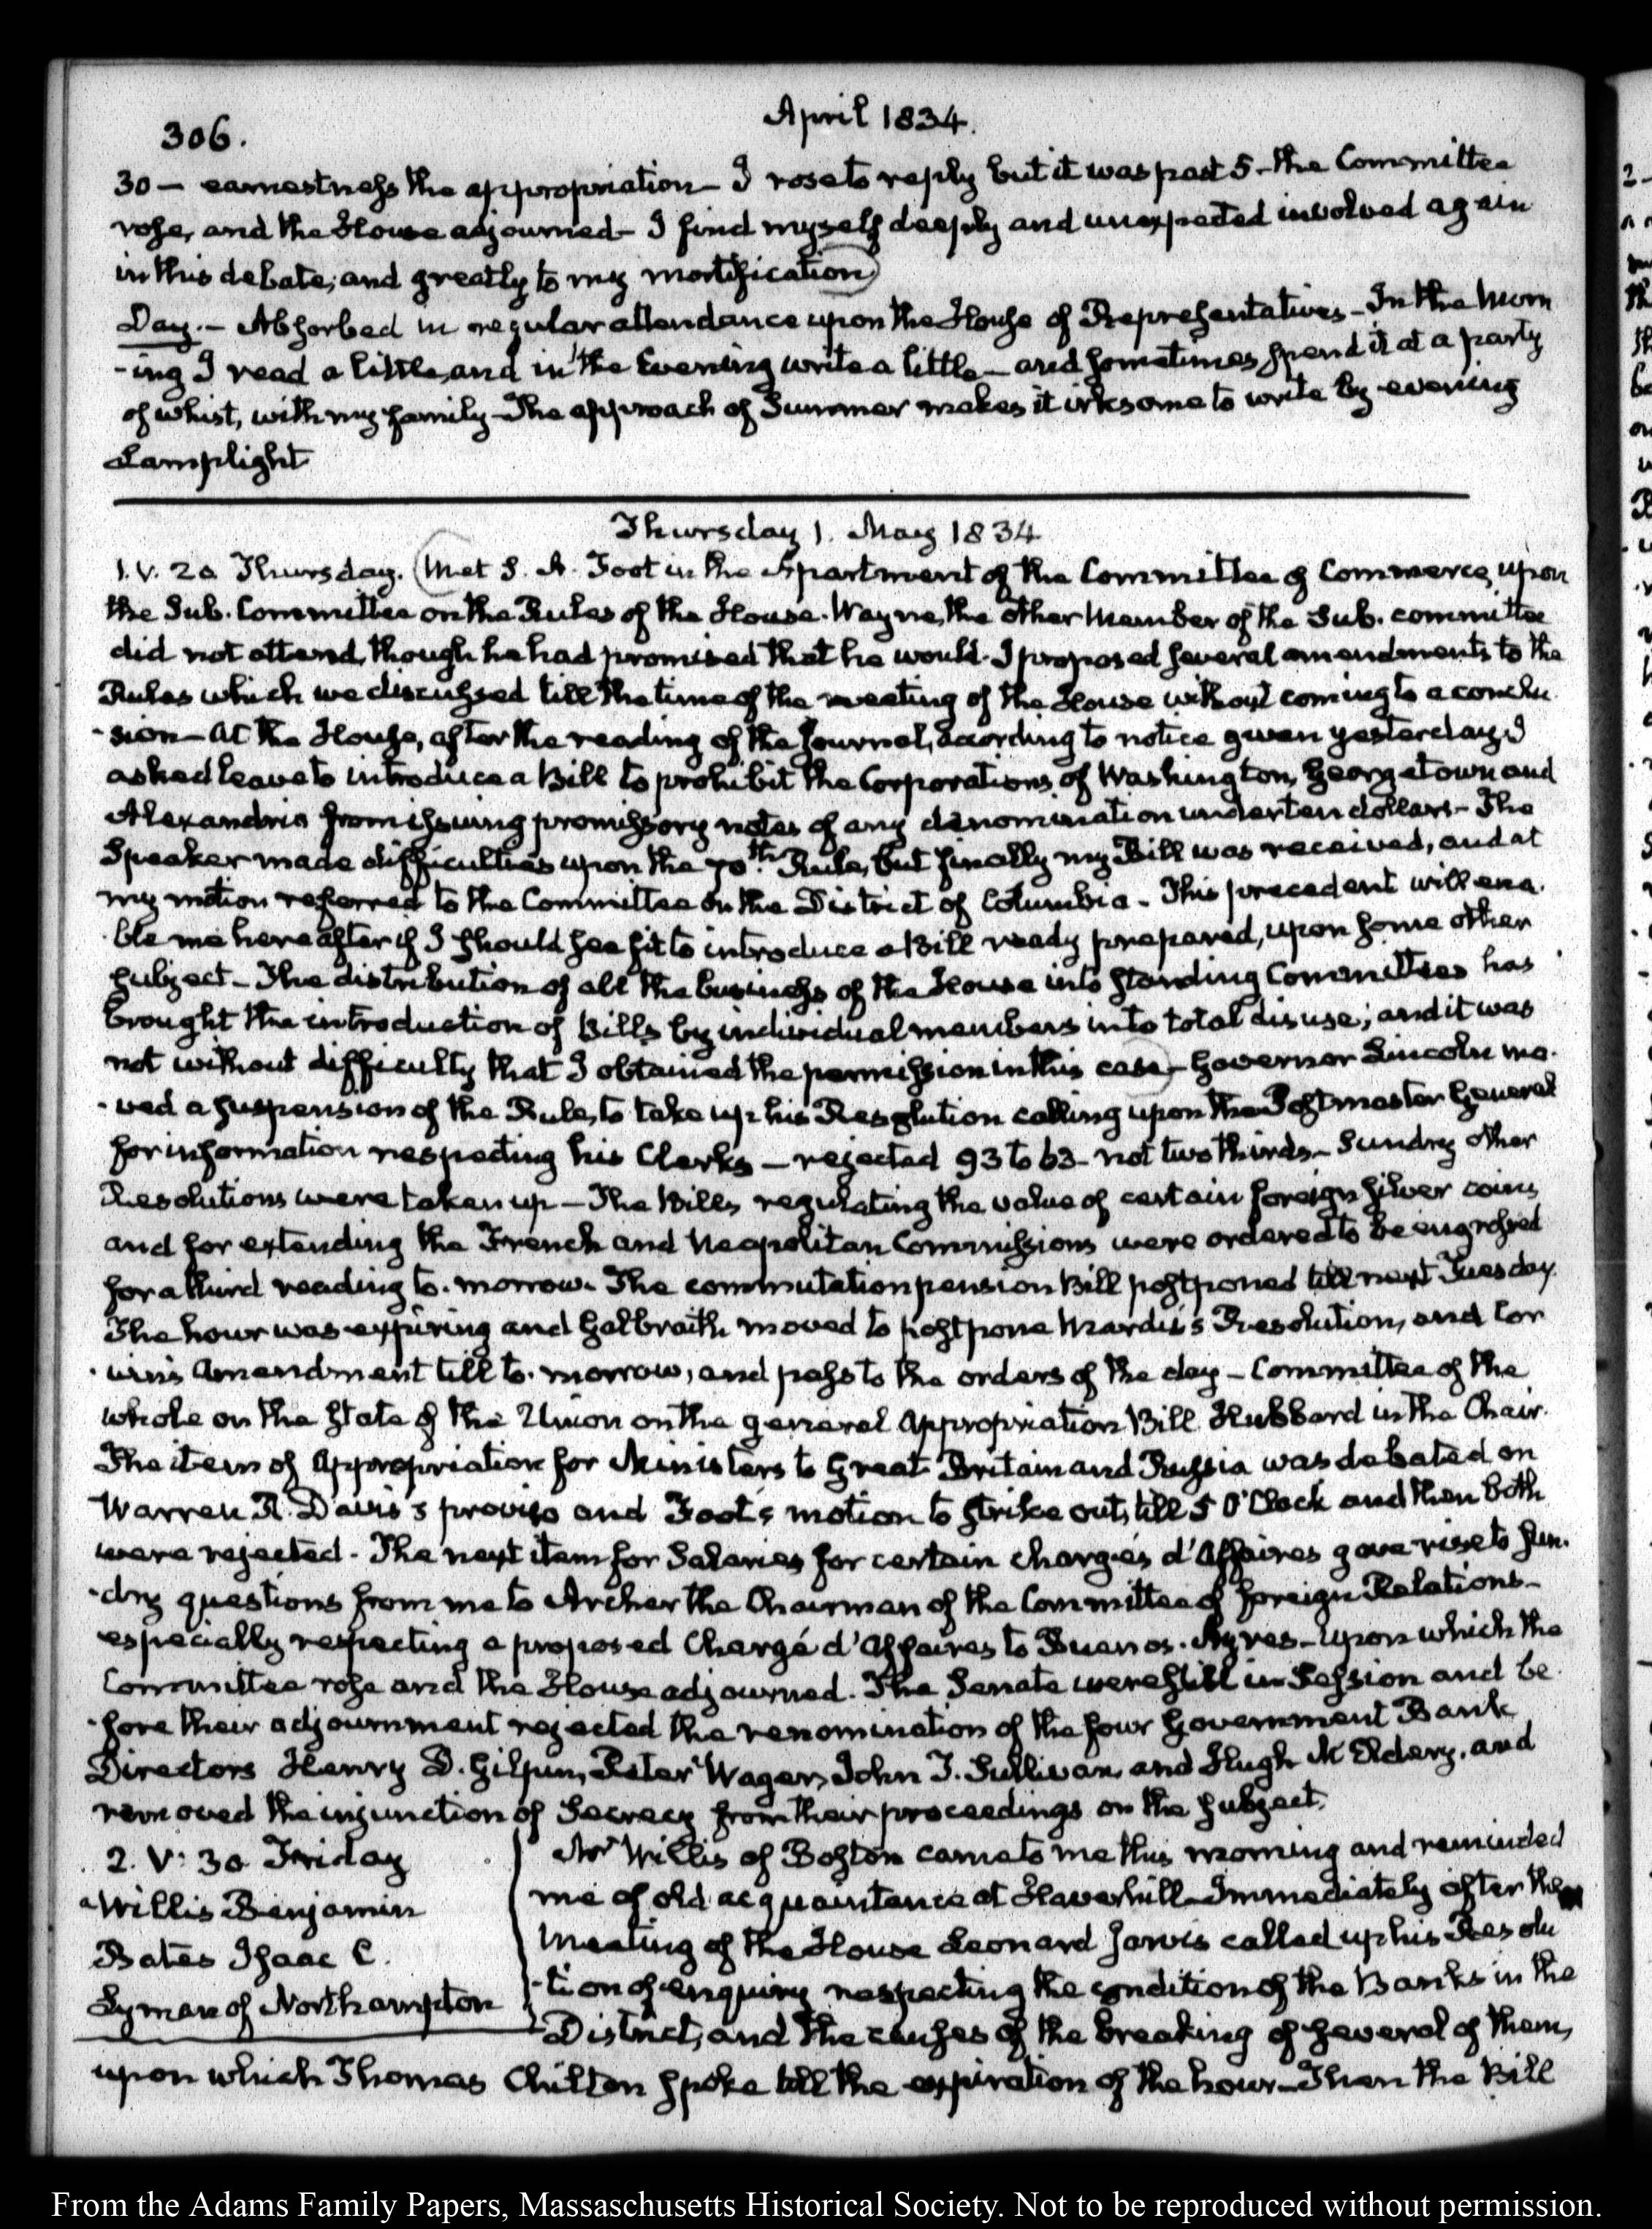 306.
April 1834.
30 — earnestness the appropriation — I rose to reply but it was past 5 - the Committee
rose, and the House adjourned — I find myself deeply and unexpected involved again
in this debate; and greatly to my mortification)
Day. — Absorbed in regular attendance upon the House of Representatives — In the Morn
-ing I read a little, and in the Evening write a little — and sometimes spend it at a party
of whist, with my family — The approach of Summer makes it irksome to write by evening
Lamplight
Thursday 1. May 1834
1. V. 20 Thursday. (Met S. A. Foot in the Apartment of the Committee of Commerce, upon
the Sub. Committee on the Rules of the House. Wayne, the other Member of the Sub. committee
did not attend, though he had promised that he would. I proposed several amendments to the
Rules which we discussed till the time of the meeting of the House without coming to a conclu
-sion — At the House, after the reading of the Journal, according to notice given yesterday, I
asked leave to introduce a Bill to prohibit the Corporations of Washington, Georgetown and
Alexandria from issuing promissory notes of any denomination under ten dollars — The
Speaker made difficulties upon the 70th. Rule, but finally my Bill was received, and at
my motion referred to the Committee on the District of Columbia — This precedent will ena
-ble me hereafter if I should see fit to introduce a Bill ready prepared, upon some other
subject — The distribution of all the business of the House into standing Committees has
brought the introduction of Bills by individual members into total disuse; and it was
not without difficulty that I obtained the permission in this case) — Governor Lincoln mo-
-ved a suspension of the Rule, to take up his Resolution calling upon the Postmaster General
for information respecting his Clerks — rejected 93 to 63 — not two thirds — Sundry other
Resolutions were taken up — The Bills regulating the value of certain foreign silver coins
and for extending the French and Neapolitan Commissions were ordered to be engrossed
for a third reading to-morrow. The commutation pension Bill postponed till next Tuesday.
The hour was expiring and Galbraith moved to postpone Mardis's Resolution, and Cor
-win's Amendment till to-morrow, and pass to the orders of the day — Committee of the
whole on the state of the Union on the general Appropriation Bill. Hubbard in the Chair.
The item of Appropriation for Ministers to Great Britain and Russia was debated on
Warren R. Davis's proviso and Foot's motion to strike out, till 5 O'Clock and then both
were rejected. The next item for Salaries for certain chargés d'Affaires gave rise to sun-
-dry questions from me to Archer the Chairman of the Committee of foreign Relations —
especially respecting a proposed Chargé d'Affaires to Buenos-Ayres — upon which the
Committee rose and the House adjourned. The Senate were still in Session and be-
-fore their adjournment rejected the renomination of the four Government Bank
Directors Henry D. Gilpin, Peter Wager, John T. Sullivan, and Hugh McEldery, and
removed the injunction of Secrecy from their proceedings on the subject.
2. V: 30 Friday
Willis Benjamin
Bates Isaac C.
Lyman of Northampton
Mr Willis of Boston came to me this morning and reminded
me of old acquaintance at Haverhill — Immediately after the
Meeting of the House Leonard Jarvis called up his Resolu
-tion of enquiry respecting the condition of the Banks in the
District, and the causes of the breaking of several of them,
upon which Thomas Chilton spoke till the expiration of the hour — Then the Bill
From the Adams Family Papers, Massaschusetts Historical Society. Not to be reproduced without permission.